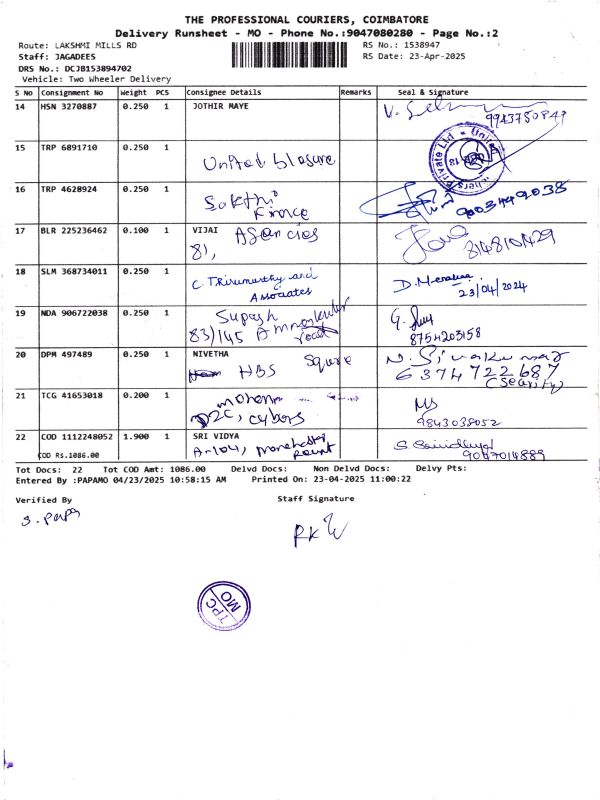 THE PROFESSIONAL COURIERS, COIMBATORE
Delivery Runsheet - MO - Phone No.:9047080280 - Page No.:2
Route: LAKSHMI MILLS RD
RS No.: 1538947
Staff: JAGADEES
RS Date: 23-Apr-2025
DRS No.: DCJB153894702
Vehicle: Two Wheeler Delivery
S No Consignment No Weight PCS Consignee Details Remarks Seal & Signature
14 HSN 3270887 0.250 1 JOTHIR MAYE
15 TRP 6891710 0.250 1 United
16 TRP 4628924 0.250 1 Sakthi 9003449038
Finance
17 BLR 225236462 0.100 1 VIJAI Agencies
81, 814810429
18 SLM 368734011 0.250 1 C. Thirumurthy and
Associates 23/04/2024
19 NDA 906722038 0.250 1
83/145 road 8754203158
20 DPM 497489 0.250 1 NIVETHA N. Sivakumar
HBS Square 6374722687
21 TCG 41653018 0.200 1 mohan
D2C, cybers 9843038052
22 COD 1112248052 1.900 1 SRI VIDYA
COD Rs.1086.00 A-104, 9047014889
Tot Docs: 22 Tot COD Amt: 1086.00 Delvd Docs: Non Delvd Docs: Delvy Pts:
Entered By :PAPAMO 04/23/2025 10:58:15 AM Printed On: 23-04-2025 11:00:22
Verified By Staff Signature
S. Papa
TPC
MO